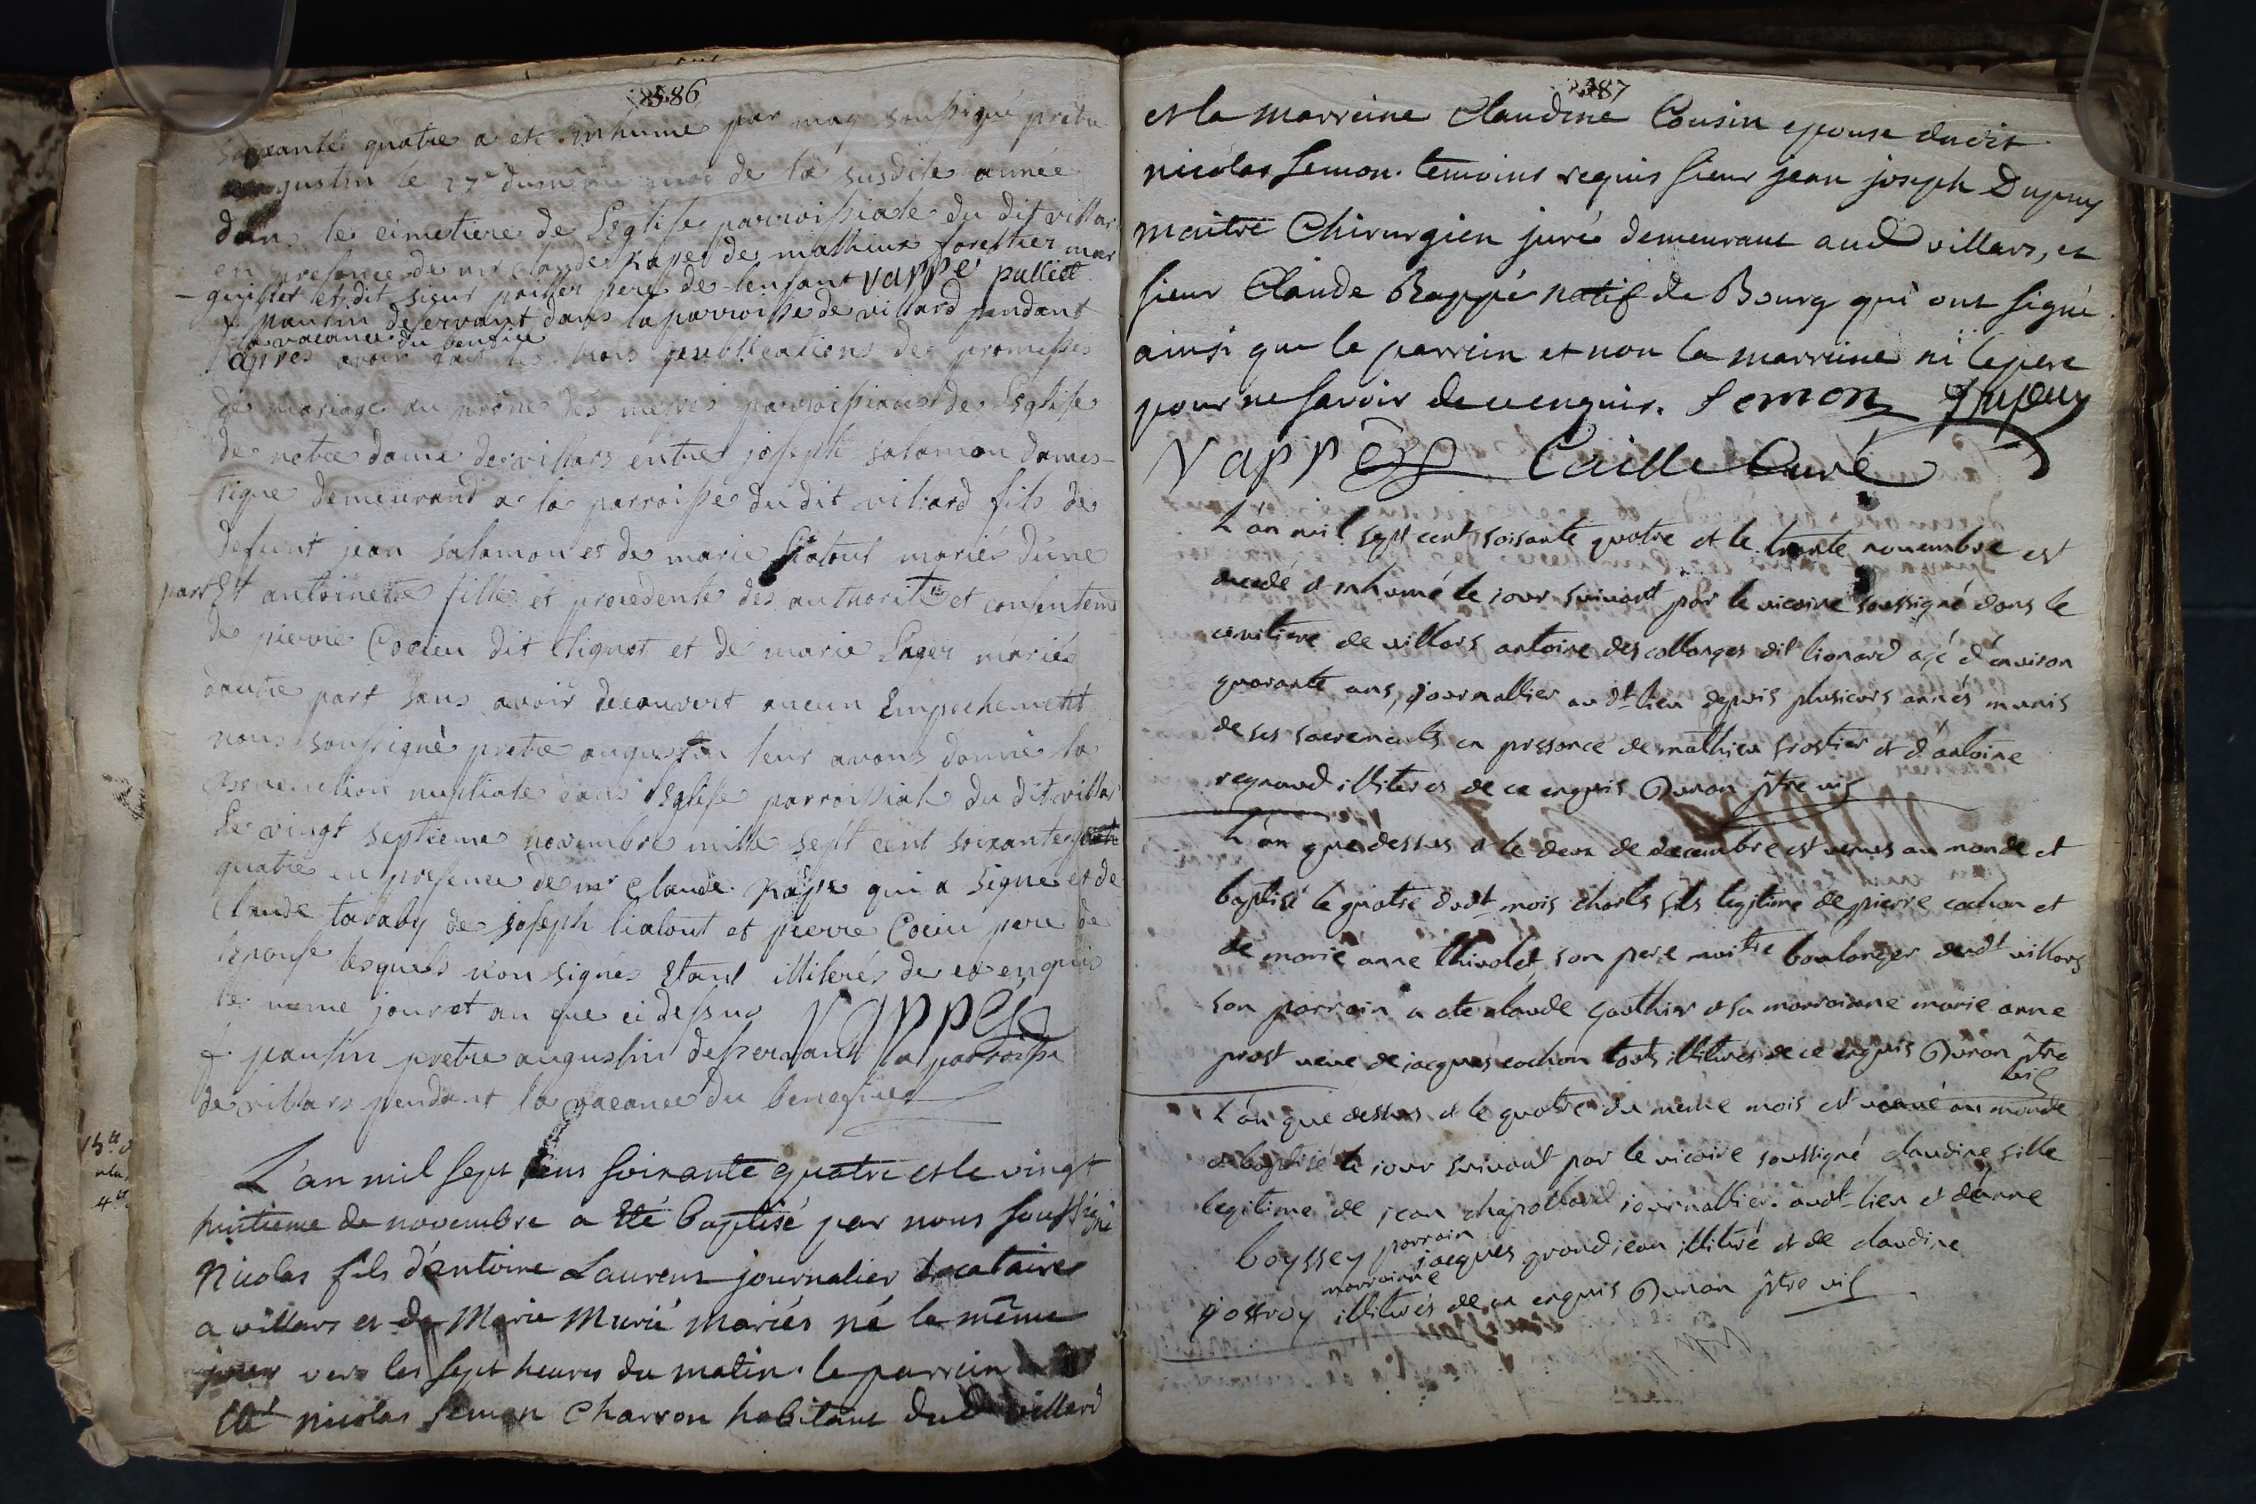 586
soixante quatre a ete inhumé par moy soussigné pretre
augustin le 27e du meme mois de la susdite année
dans le cimetiere de L'Eglise parroissiale du dit villar
en presence de mr claude rape de mathieux forestier mar
guillier et dit sieur paillet pere de lenfant Vappé palliet
f paulin deservant dans la parroisse de villard pendant
la vacance du benefice
apres avoir fait les trois publications des promesses
de mariage au prône des messes parroissiales de L'Eglise
de notre dame de villars entre joseph salomon domes-
tique demeurant a la parroisse du dit villard fils de
defunt jean salomon et de marie liatout mariés d'une
part Et antoinette fille et procedente des authorités et consenteme
de pierre Cocieu dit lignot et de marie mariés
dautre part sans avoir decouvert aucun Empechement
nous soussigné pretre augustin leur avons donné la
benediction nuptiale dans l'Eglise parroissiale du dit villar
Le vingt septieme novembre mille sept cent soixante
quatre en presence de mr claude rape qui a signé et de
Claude tavaby de joseph liatout et pierre Cocieu pere de
l'epouse lesquels non signés Etant illiterés de ce enquis
le meme jour et an que ci dessus Vappé
f paulin pretre augustin desservant la parroisse
de villars pendant la vacance du benefice
L'an mil sept cens soixante quatre et le vingt
huitieme de novembre a été baptisé par nous soussigné
Nicolas fils d'antoine Laurens journalier locataire
a villars et de Marie Murié mariés né le même
jour vers les sept heures du matin. le parrein
Nicolas Semon Charron habitant dud villard
587
et la marreine Claudine Cousin epouse dudit
nicolas Semon. temoins requis sieur jean joseph Dupuy
maitre Chirurgien juré demeurant aud villars, et
sieur Claude Rappé natif de Bourg qui ont signé
ainsi que le parrein et non la marreine ni le pere
pour ne savoir de ce enquis. Semon Dupuy
Vappé Caille Curé
L'an mil sept cent soisante quatre et le trante novembre est
decedé et inhumé le jour suivant par le vicaire soussigné dans le
cemitiere de villars antoine des collonges dit lionard agé d'environ
quarante ans, journallier au dt lieu depuis plusieurs annés munis
de ses sacrements en pressence de mathieu frostier et d'antoine
regnaud illiteres de ce enquis Duran ptre vic
L'an que dessus et le deux de decembre est venus au monde et
baptisé le quatre dudt mois charls fils legitime de pierre cochon et
de marie anne thivolet son pere maitre boulanger dudt villars
son parrain a ete claude gauthier et sa marrainne marie anne
prost veuve de jacques cochon touts illiterés de ce enquis Duran ptre
vic
L'an que dessus et le quatre du meme mois est venue au monde
et baptisé le jour suivant par le vicaire soussigné claudine fille
legitime de jean chapolard journallier audt lieu et d'anne
boyssey parrain jacques grandjean illitéré et de claudine
marrainne
joffroy illiterés de ce enquis Duran ptre vic